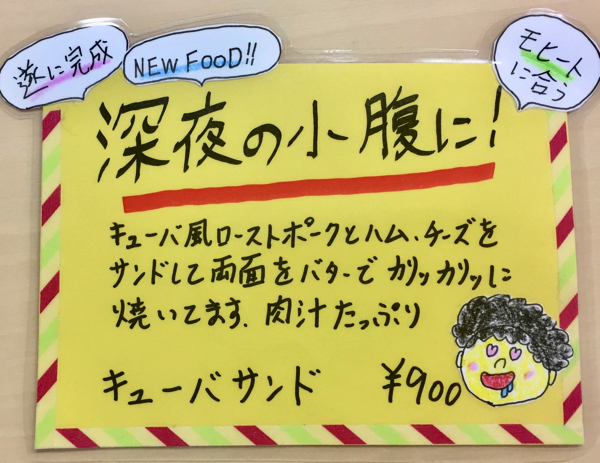 遂に完成
NEW FOOD!!
モヒート
に合う
深夜の小腹に!
キューバ風ローストポークとハム、チーズを
サンドして両面をバターでカリッカリッに
焼いてます。肉汁たっぷり
キューバサンド ¥900